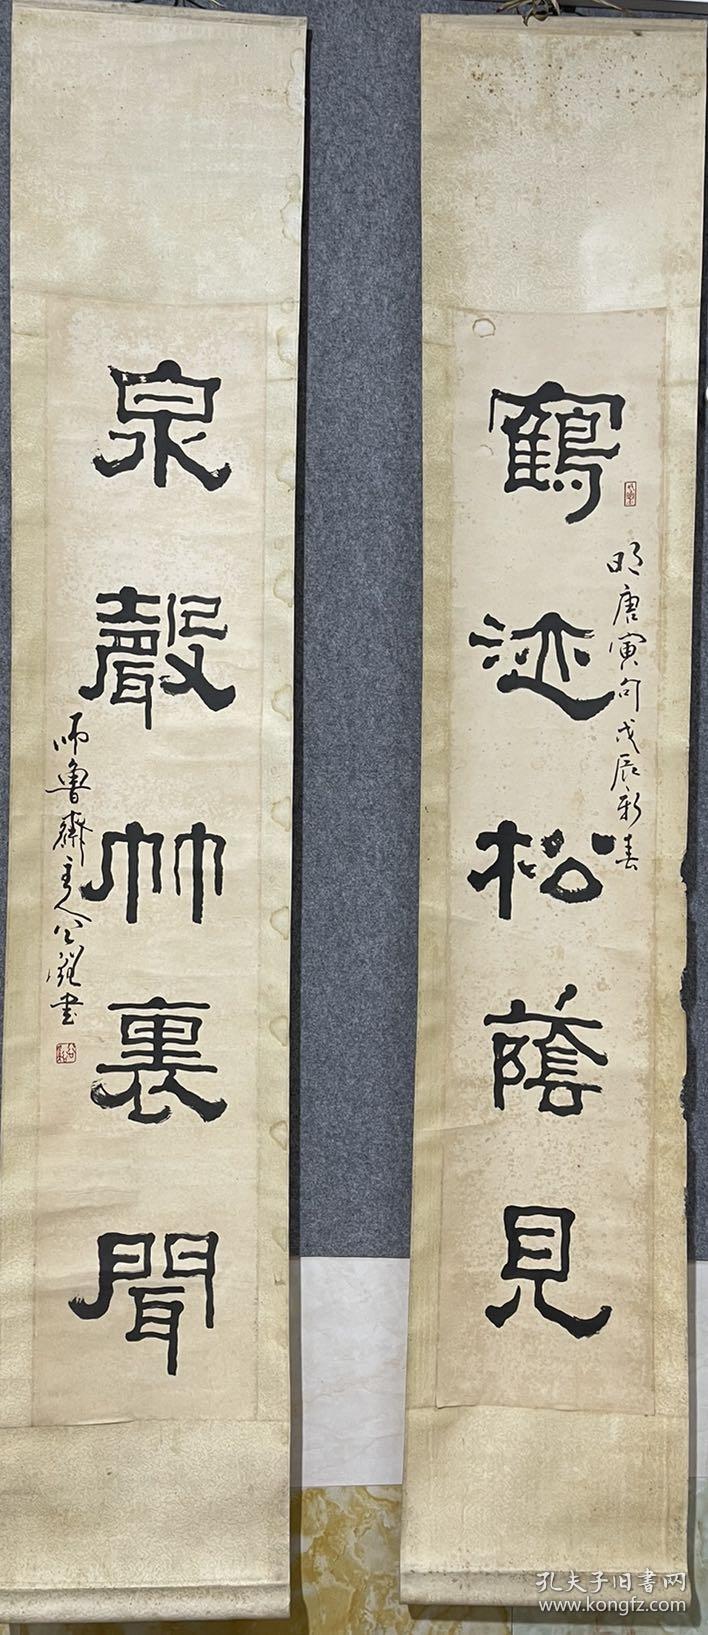 鶴迹松蔭見
明唐寅句戊辰新春
泉聲竹裏聞
師魯齋主人公
書
孔夫子旧书网
www.kongfz.com